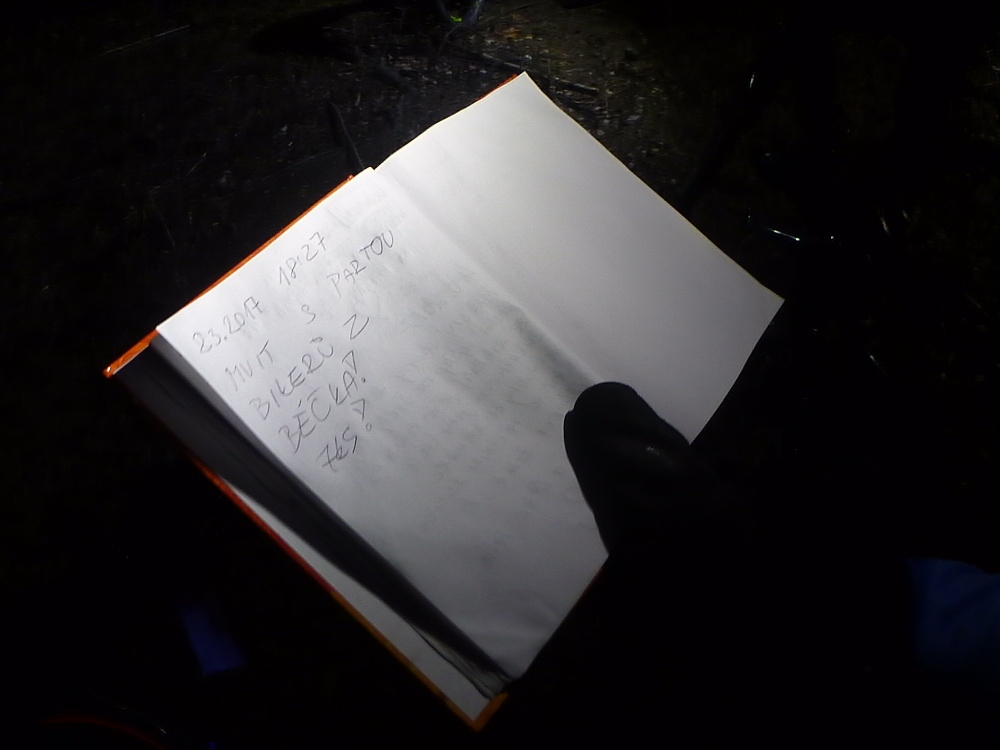 23.2017 18:27
MUIT S PARTOU
BIKERŮ Z
BÉČKA!
7KS!